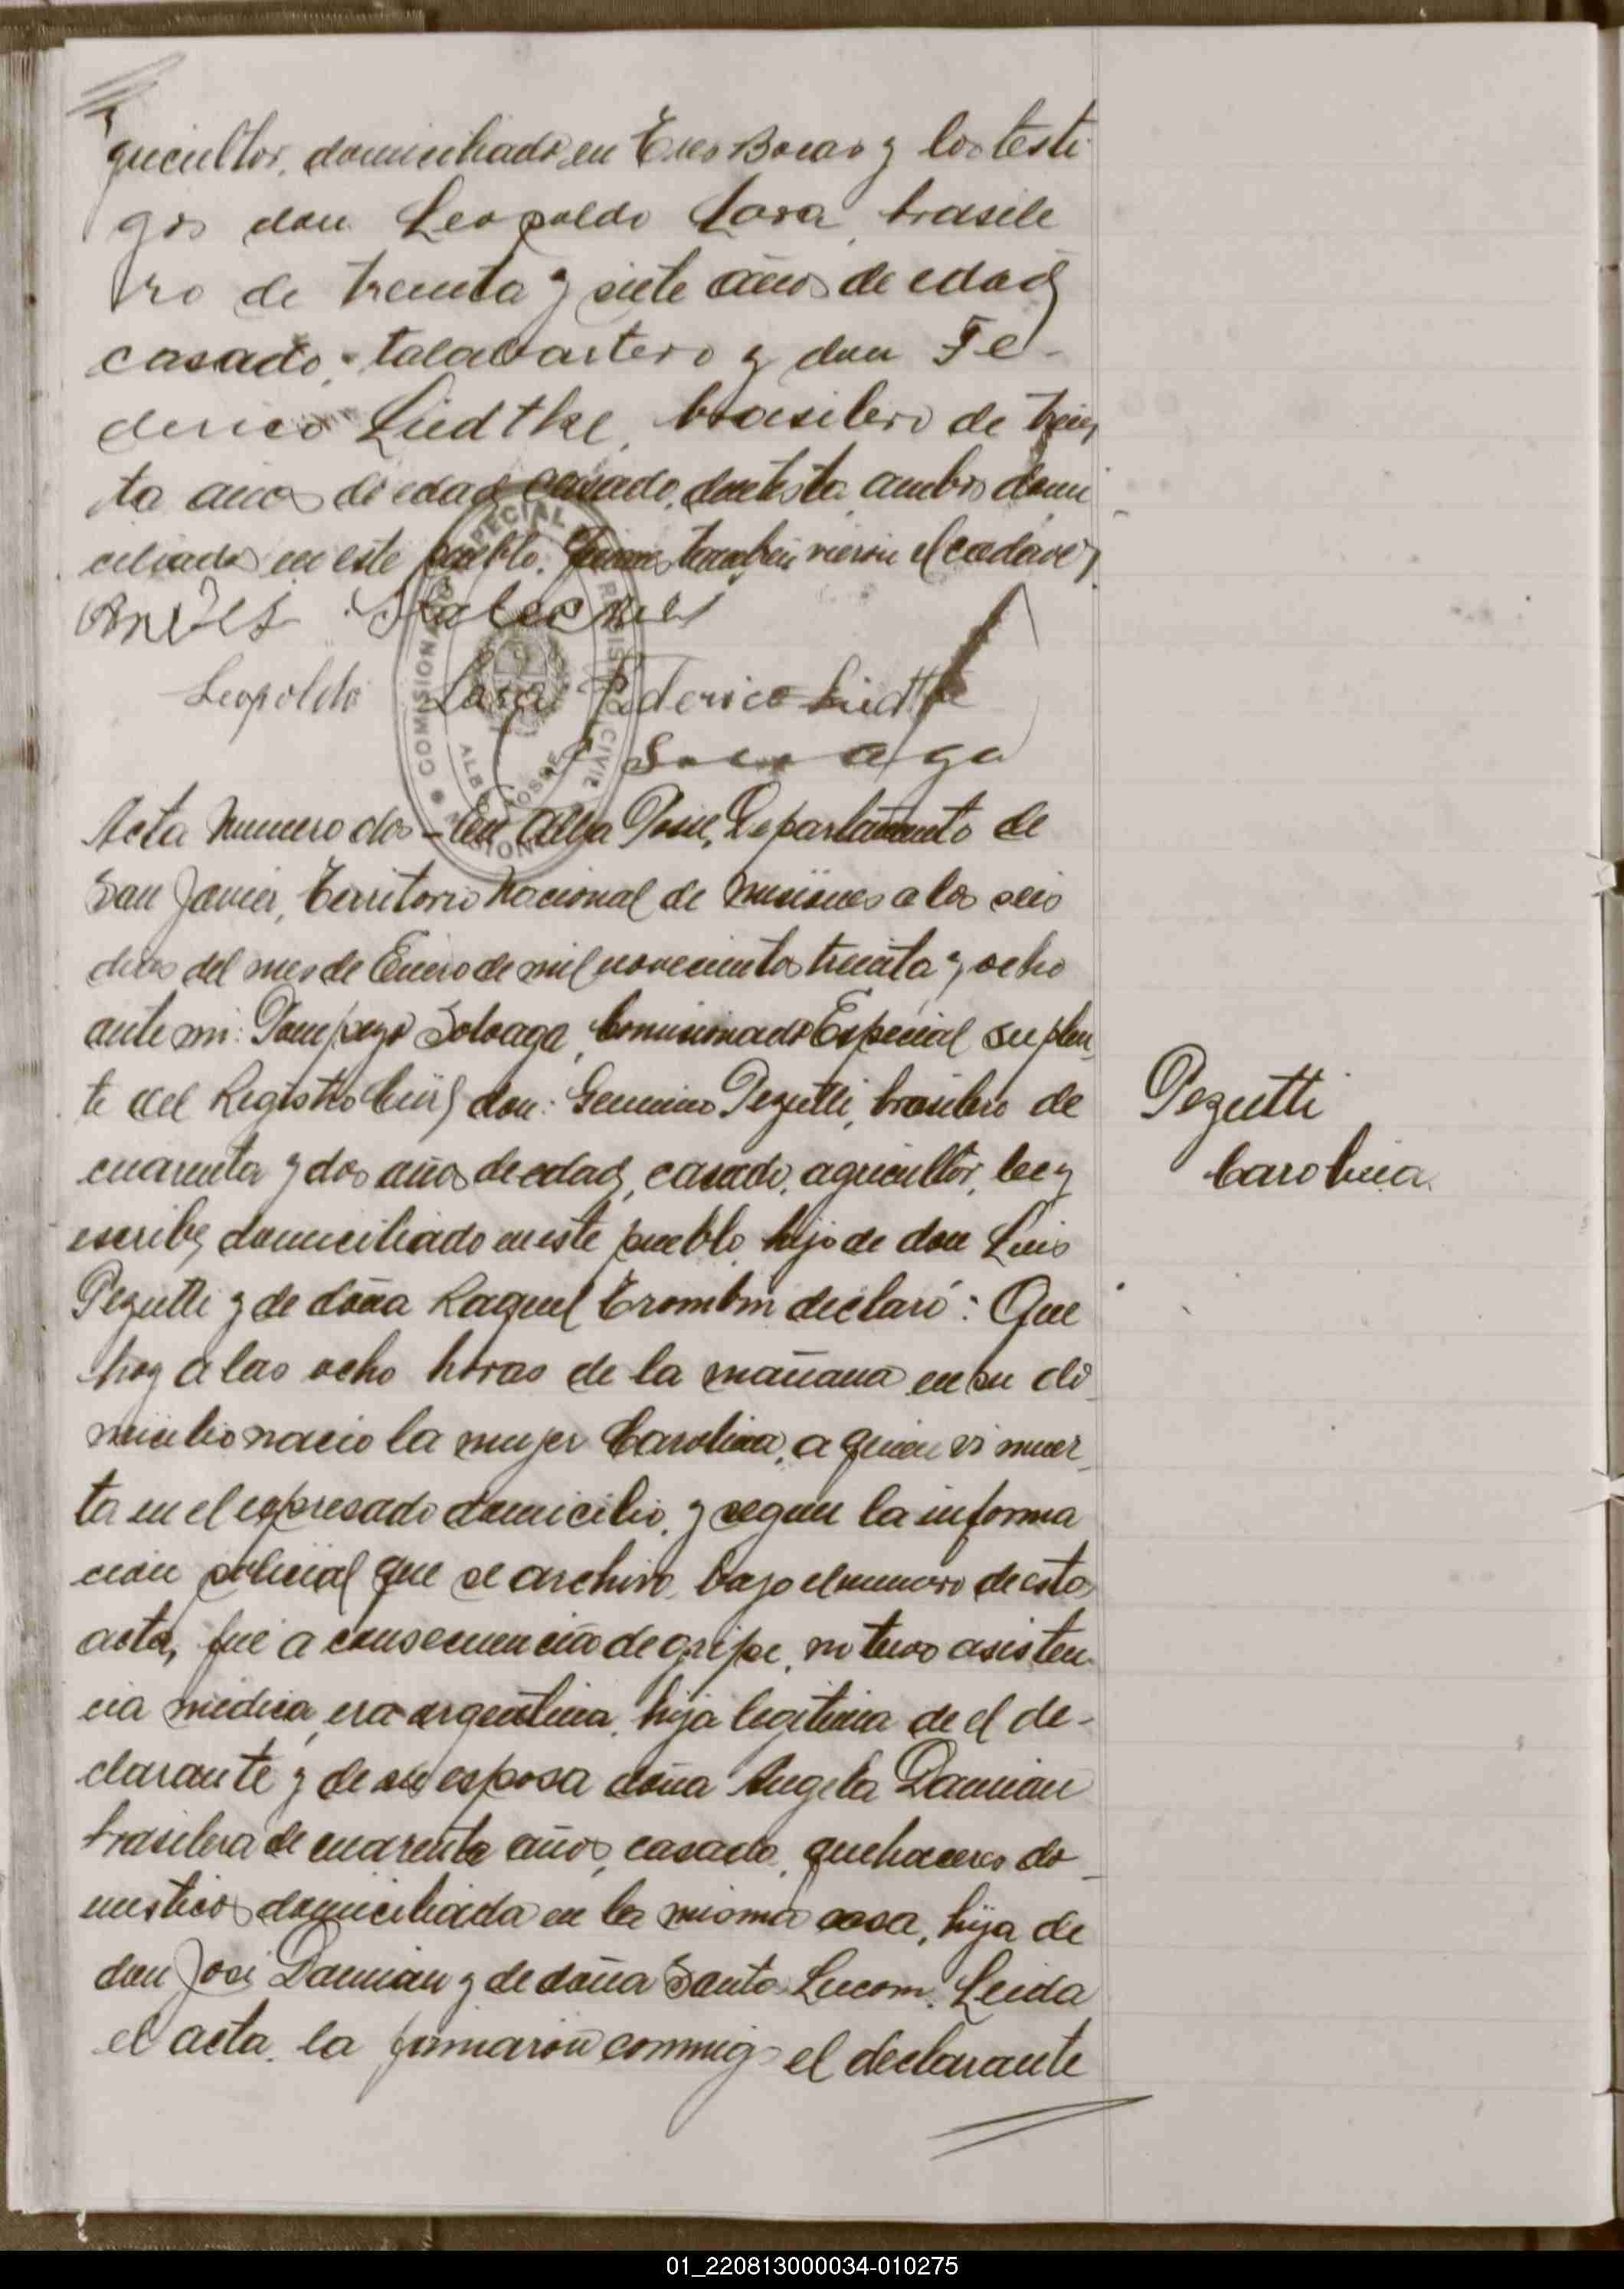 gricultor, domiciliado en Tres Bocas y los testi
gos don Leopoldo Lara, brasile
ro de treinta y siete años de edad
casado, talabartero y don Fe-
derico Liedtke, brasilero de trein
ta años de edad casado, dentista, ambos domi
ciliados en este pueblo, quienes tambien vieron el cadaver
Leopoldo Lara Federico Liedtke
P Soloaga
COMISIONADO ESPECIAL REGISTRO CIVIL
ALBA POSSE
MISIONES
Acta Numero dos - En Alba Posse, Departamento de
San Javier, Territorio Nacional de Misiones a los seis
dias del mes de Enero de mil novecientos treinta y ocho
ante mi: Pompeyo Soloaga, Comisionado Especial suplen
te del Registro Civil don: Geminio Pezutti, brasilero de
cuarenta y dos años de edad, casado, agricultor, lee y
escribe, domiciliado en este pueblo, hijo de don Luis
Pezutti y de doña Raquel Trombin declaró: Que
hoy a las ocho horas de la mañana en su do
micilio nacio la mujer Carolina, a quien vi muer
ta en el expresado domicilio, y segun la informa
cion policial que se archivo bajo el numero de esta
acta, fue a consecuencia de gripe, no tuvo asisten
cia medica, era argentina, hija legitima de el de-
clarante y de su esposa doña Angela Damian
brasilera de cuarenta años, casada, quehaceres do
mesticos domiciliada en la misma casa, hija de
don José Damian y de doña Santa Lucom. Leida
el acta, la firmaron conmigo el declarante
Pezutti
Carolina
01_220813000034-010275